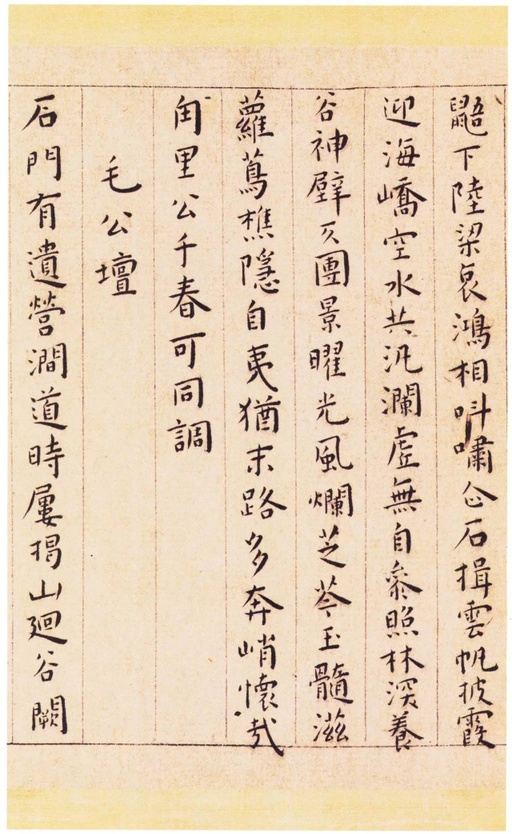 鼯下陸梁哀鴻相叫嘯企石揖雲帆披霞
迎海嶠空水共汎瀾虛無自參照林深養
谷神壁仄團景曜光風爛芝苓玉髓滋
蘿蔦樵隱自夷猶末路多奔峭懷哉
甪里公千春可同調
毛公壇
石門有遺營澗道時屢揭山廻谷闕